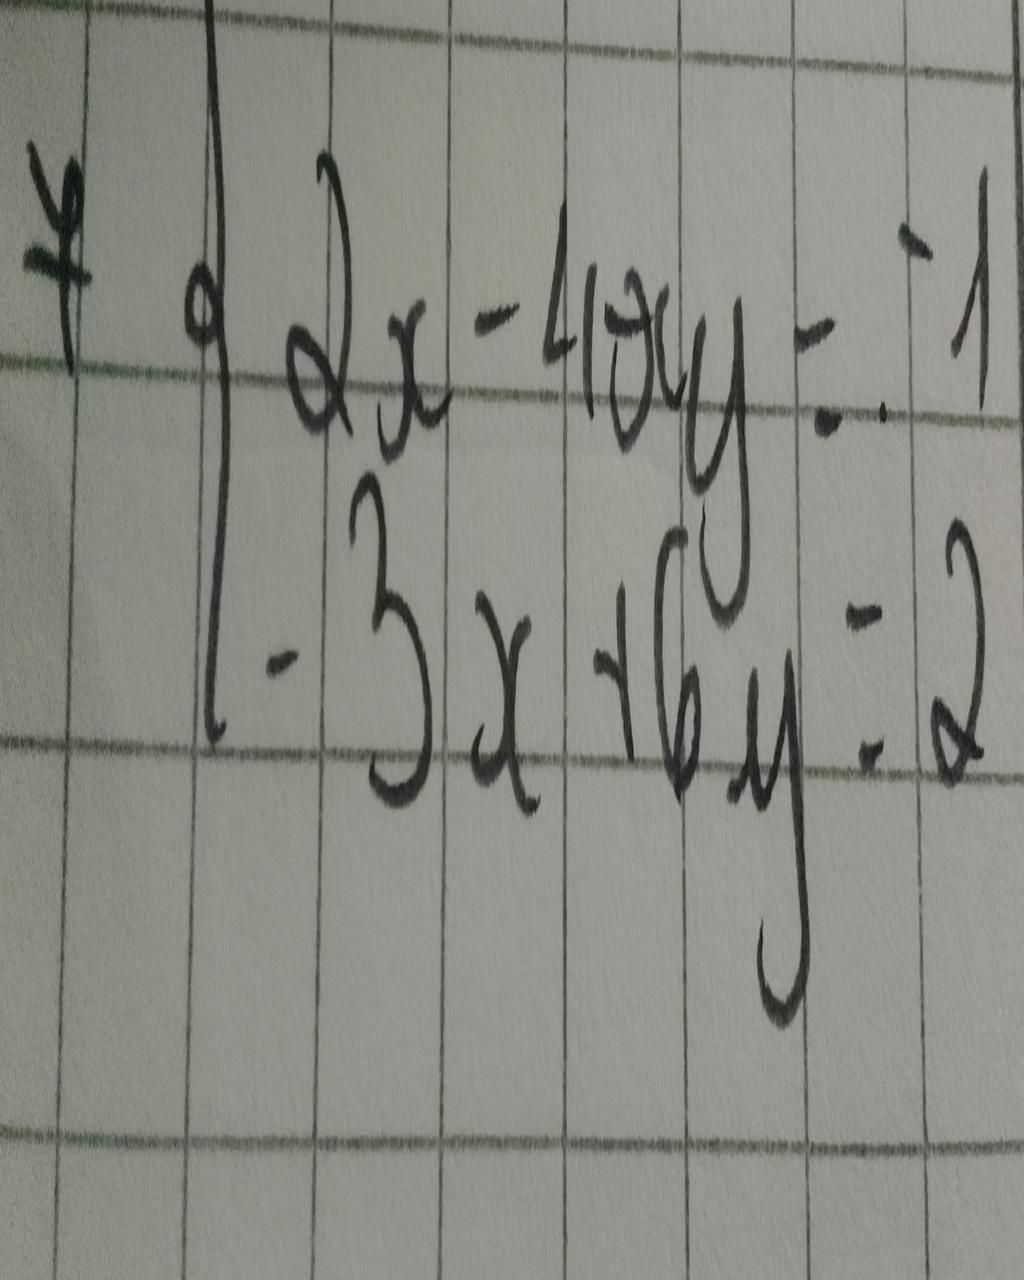 2x - 4xy = -1
-3x + 6y = 2